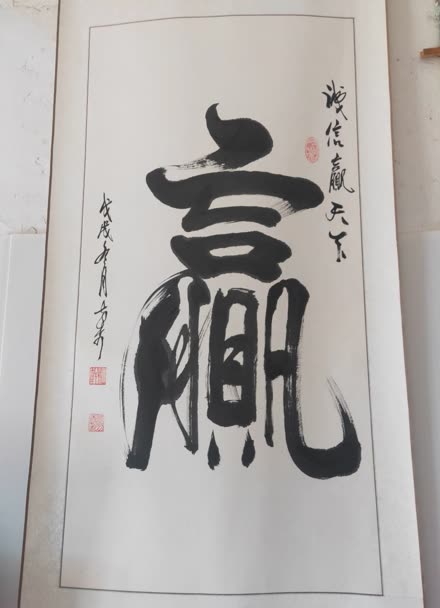 诚信赢天下
赢
戊戌冬月